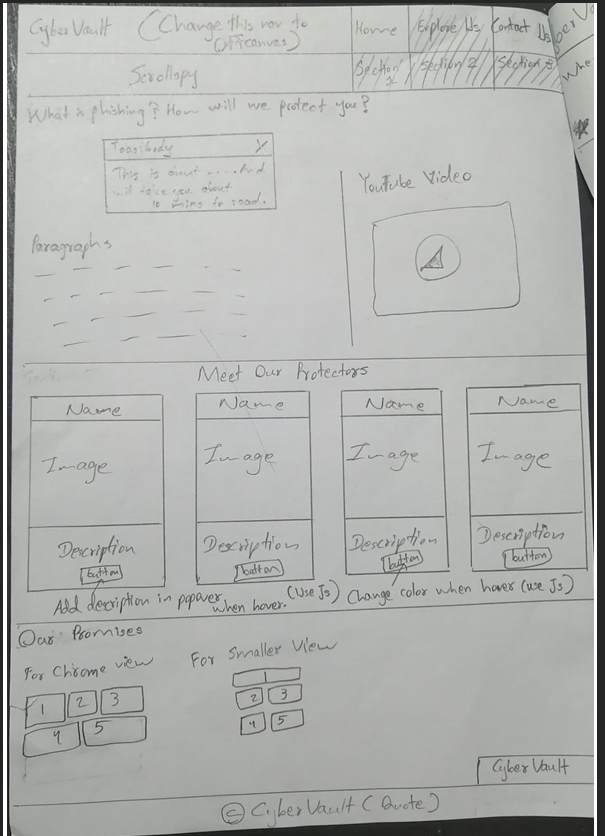 CyberVault (Change this nav to Offcanvas) Home Explore Us Contact Us
Scrollspy Section 1 Section 2 Section 3
What is phishing? How will we protect you?
Toastbody X
This is about .... And
will take you about
10 mins to read.
YouTube Video
Paragraphs
Meet Our Protectors
Name Name Name Name
Image Image Image Image
Description Description Description Description
button button button button
Add description in popover when hover. (Use Js) Change color when hover (use Js)
Our Promises
For Chrome view For Smaller View
1 2 3
4 5
1
2 3
4 5
CyberVault
© CyberVault (Quote)